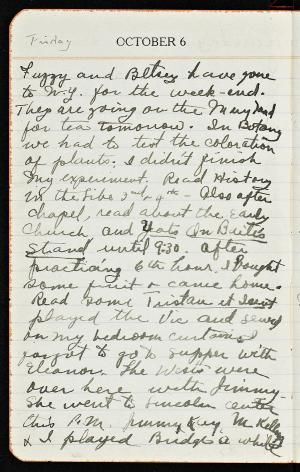 Friday
OCTOBER 6
Fuzzy and Betsey have gone
to N.Y. for the week-end.
They are going on the
for tea tomorrow. In Botany
we had to test the coloration
of plants. I didn't finish
my experiment. Read History
in the Libe 3rd & 4th. Also after
chapel, read about the Early
Church and
Stand until 9:30. After
practicing 6th hour, I bought
some fruit & came home.
Read some Tristan et Iseut
played the Vic and sewed
on my bedroom curtains. I
forgot to go to supper with
Eleanor. The were
over here with Jimmy.
She went to Lincoln Center
this P.M. Jimmy, Kay, M. Kelly
& I played Bridge a while